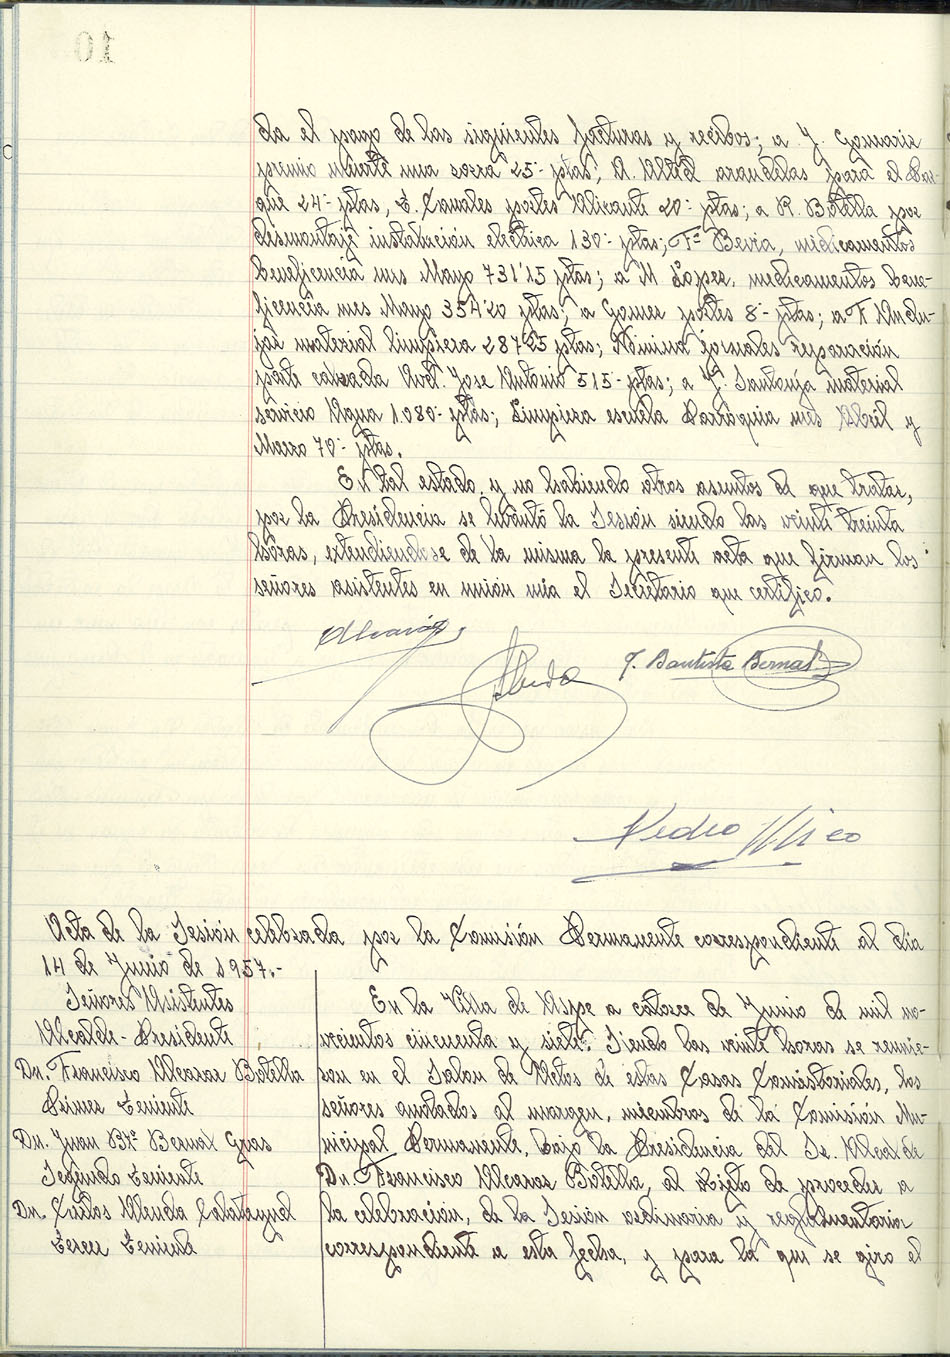 da el pago de las siguientes facturas y recibos; a J. Gomariz
premio muerte una zorra 25- ptas; A. Alted arandelas para el Par-
que 24- ptas, E. Canales portes Alicante 20- ptas; a R. Botella por
desmontaje instalación eléctrica 130- ptas; Fº Bevia, medicamentos
beneficencia mes Mayo 731'15 ptas; a M Lopez, medicamentos bene-
ficencia mes Mayo 354'20 ptas; a Gomez portes 8- ptas; a F Andu-
jar material limpieza 287'25 ptas; Nómina jornales reparación
parte calzada Avd. Jose Antonio 515- ptas; a J. Santonja material
servicio Agua 1.080- ptas; Limpieza escuela Parroquia mes Abril y
Marzo 70- ptas.
En tal estado, y no habiendo otros asuntos de que tratar,
por la Presidencia se levantó la Sesión siendo las veinte treinta
horas, extendiendose de la misma la presente acta que firman los
señores asistentes en unión mia el Secretario que certifico.
Alcaraz
Alenda
J. Bautista Bernal
Pedro Mico
Acta de la Sesión celebrada por la Comisión Permanente correspondiente al dia
14 de Junio de 1957.-
Señores Asistentes
Alcalde-Presidente
Dn. Francisco Alcaraz Botella
Primer Teniente
Dn. Juan Btª Bernal Gras
Segundo Teniente
Dn. Carlos Alenda Calatayud
Tercer Teniente
En la Villa de Aspe a catorce de Junio de mil no-
vecientos cincuenta y siete. Siendo las veinte horas se reunie-
ron en el Salon de Actos de estas Casas Consistoriales, los
señores anotados al margen, miembros de la Comisión Mu-
nicipal Permanente, bajo la Presidencia del Sr. Alcalde
Dn. Francisco Alcaraz Botella, al objeto de proceder a
la celebración, de la Sesión ordinaria y reglamentaria
correspondiente a esta fecha, y para la que se giro el